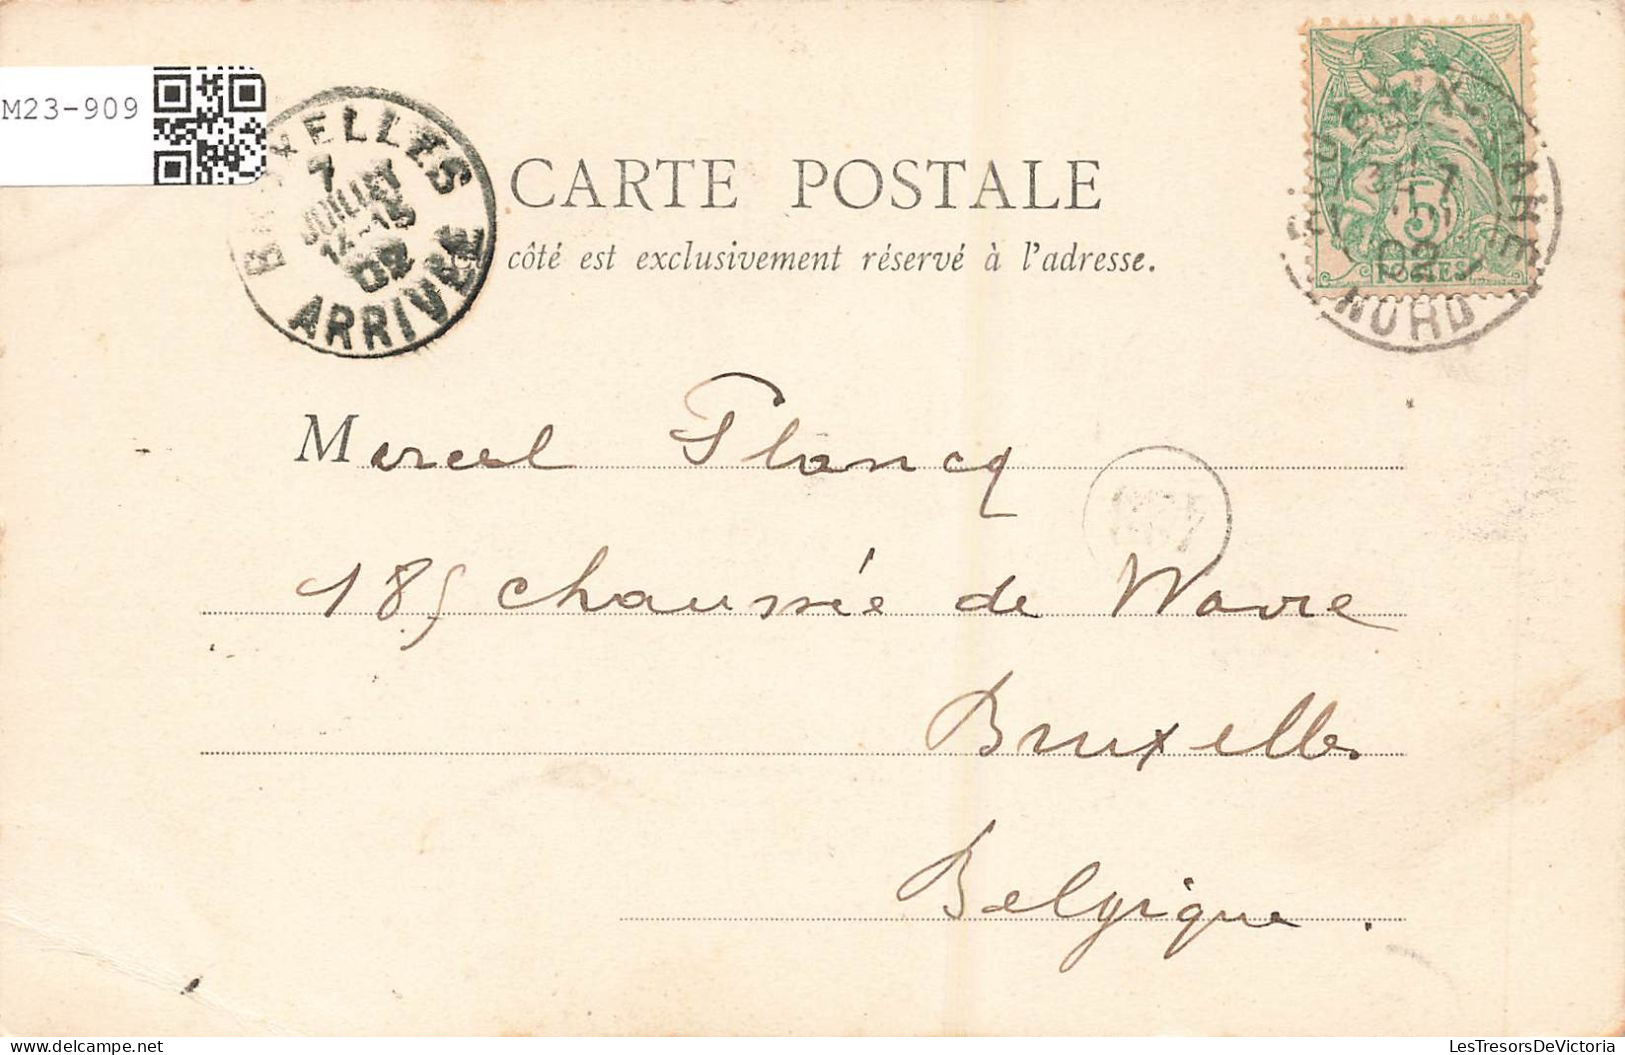 M23-909
BRUXELLES
7
JUILLET
02
ARRIVÉE
CARTE POSTALE
côté est exclusivement réservé à l'adresse.
5
POSTES
02
NORD
Marcel Plancq
185 chaussée de Wavre
Bruxelles
Belgique.
LesTresorsDeVictoria